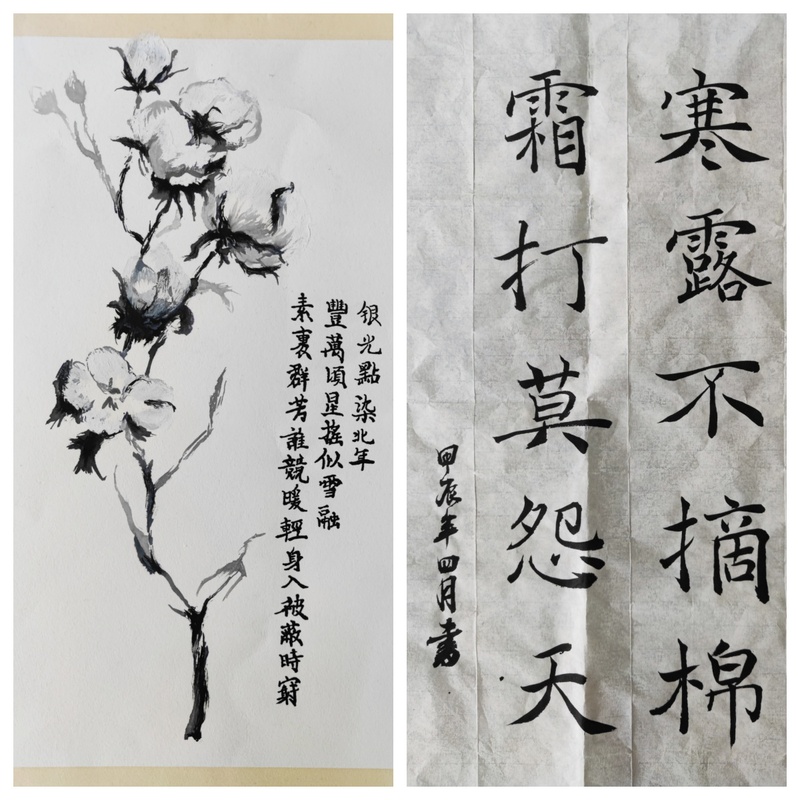 银光點染北年
豐萬頃星搖似雪融
素裹群芳誰競暖輕身入被蔽時窮
寒露不摘棉
霜打莫怨天
甲辰年四月書